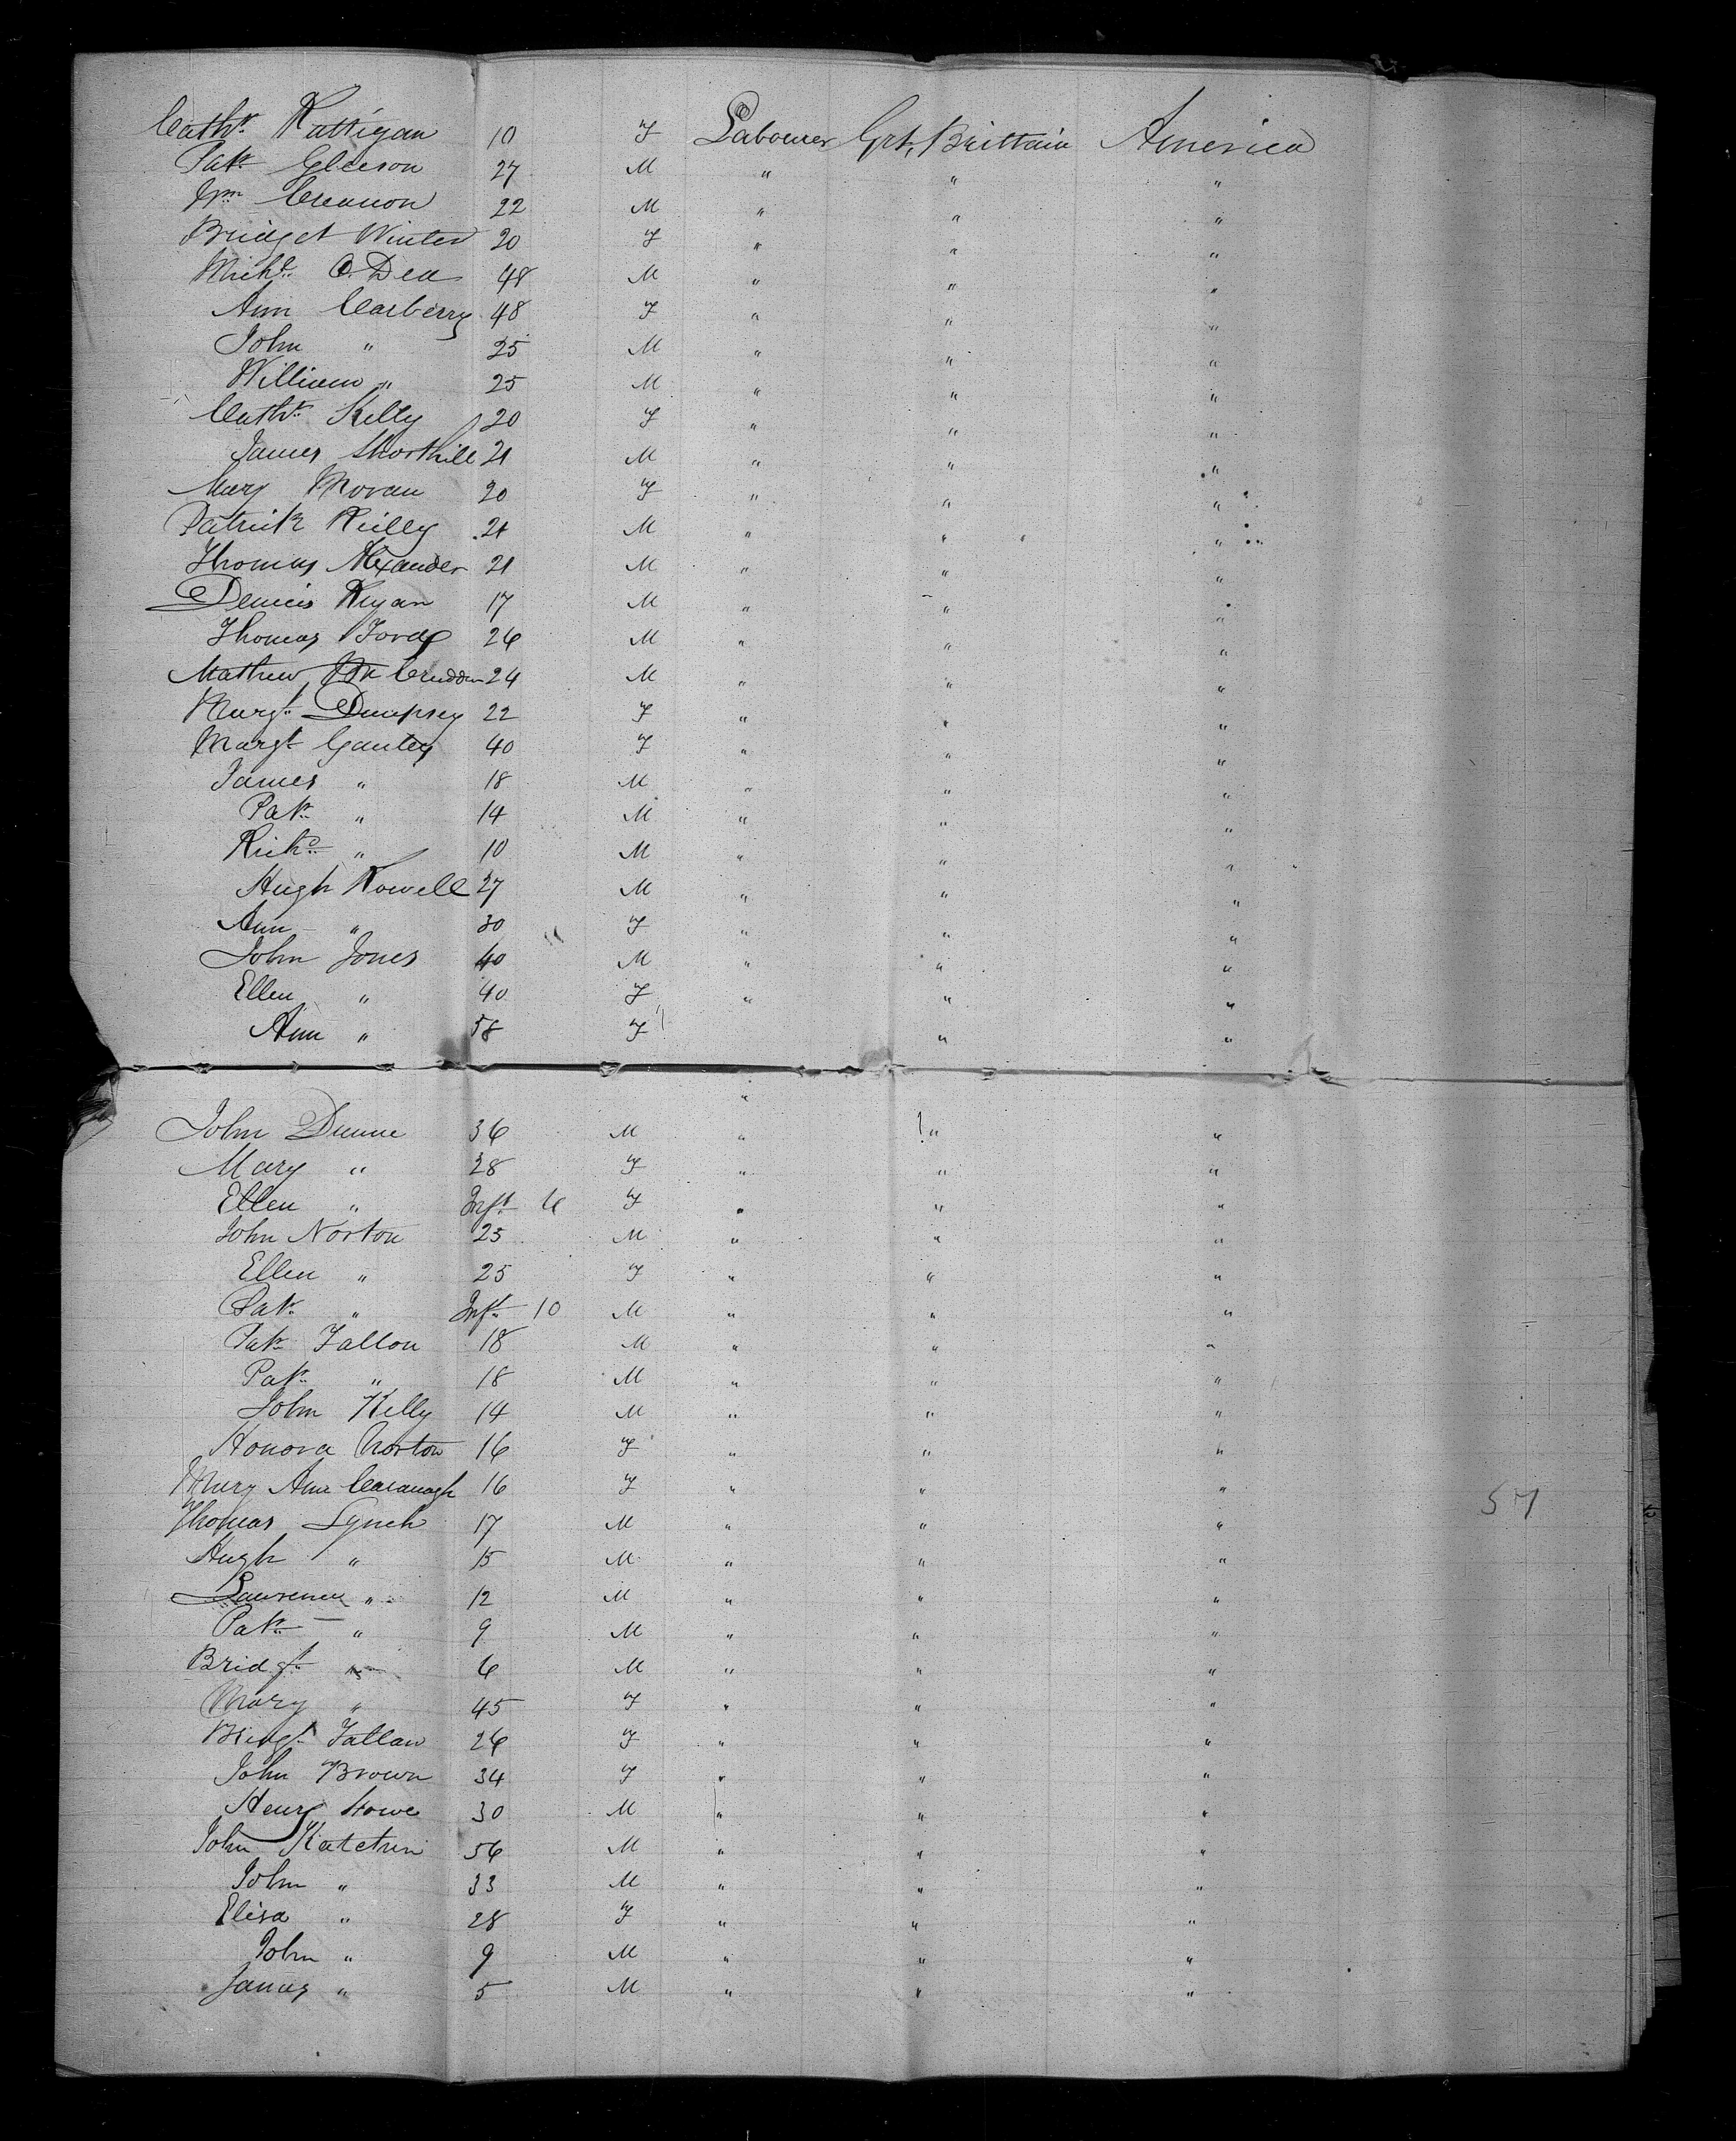 Cathe. Rattigan 10 F Labourer Grt, Brittain America
Patk Gleeson 27 M " " "
Wm Creanon 22 M " " "
Bridget Winter 20 F " " "
Michl. O Dea 48 M " " "
Ann Carberry 48 F " " "
John " 25 M " " "
William " 25 M " " "
Cathe. Kelly 20 F " " "
James Shorthill 21 M " " "
Mary Moran 20 F " " "
Patrick Rielly 21 M " " "
Thomas Alexander 21 M " " "
Dennis Ryan 17 M " " "
Thomas Ford 26 M " " "
Mathew Mc Crudden 24 M " " "
Margt. Dempsey 22 F " " "
Margt Gantey 40 F " " "
James " 18 M " " "
Patk. " 14 M " " "
Richd. " 10 M " " "
Hugh Rowell 27 M " " "
Ann " 30 F " " "
John Jones 40 M " " "
Ellen " 40 F " " "
Ann " 58 F " " "
John Dunne 36 M " " "
Mary " 28 F " " "
Ellen " Inft 6 F " " "
John Norton 25 M " " "
Ellen " 25 F " " "
Patk. " Inft. 10 M " " "
Patk Fallon 18 M " " "
Patk. " 18 M " " "
John Kelly 14 M " " "
Honora Norton 16 F " " "
Mary Ann Cavanagh 16 F " " "
57
Thomas Lynch 17 M " " "
Hugh " 15 M " " "
Lawrence " 12 M " " "
Patk. " 9 M " " "
Bridgt. " 6 M " " "
Mary " 45 F " " "
Bridgt. Fallan 26 F " " "
John Brown 34 F " " "
Henry Howe 30 M " " "
John Katchin 56 M " " "
John " 33 M " " "
Elisa " 28 F " " "
John " 9 M " " "
James " 5 M " " "